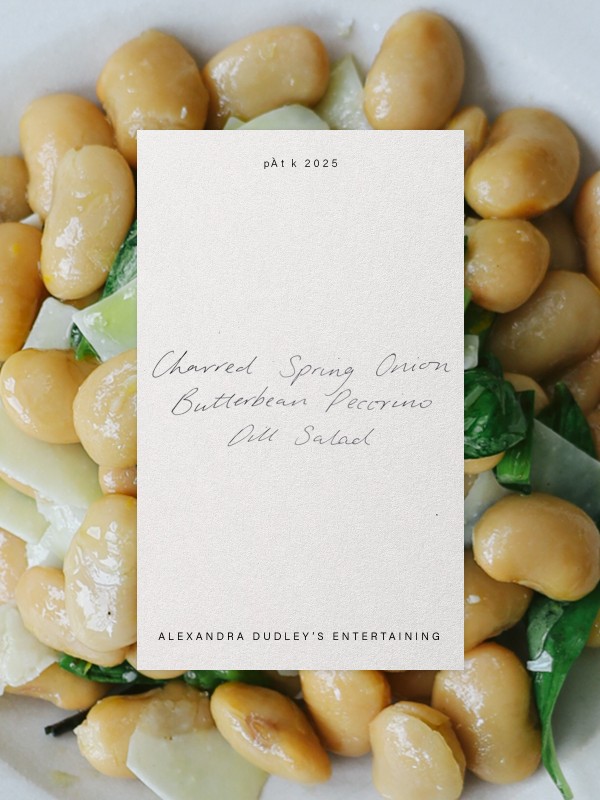 pÀt k 2025
Charred Spring Onion
Butterbean Pecorino
Dill Salad
ALEXANDRA DUDLEY'S ENTERTAINING